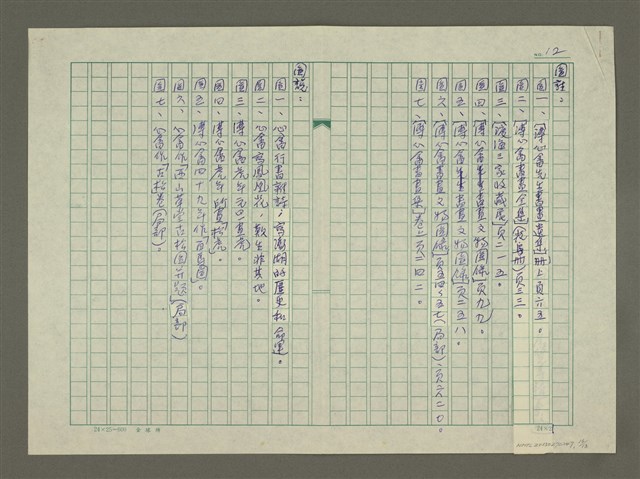 NO. 12
圖註：
圖一、《溥心畬先生書畫遺集》冊上頁六五。
圖二、《溥心畬書畫全集》頁三三。
圖三、頁二一五。
圖四、《溥心畬書畫文物圖錄》頁九九。
圖五、《溥心畬書畫文物圖錄》頁二五八。
圖六、《溥心畬書畫文物圖錄》頁五四、五七（局部）、頁二六二七。
圖七、《溥心畬書畫集》卷二頁二四二。
圖說：
圖一、心畬行書雜詩，寫澎湖的歷史和命運。
圖二、心畬寫鳳凰花，歎生非其地。
圖三、溥心畬虎年元旦畫虎。
圖四、溥心畬虎年所畫「松虎」。
圖五、溥心畬四十九年作百馬圖。
圖六、心畬作西山草堂古松圖并題（局部）
圖七、心畬作「古松卷」（局部）。
24×25=600